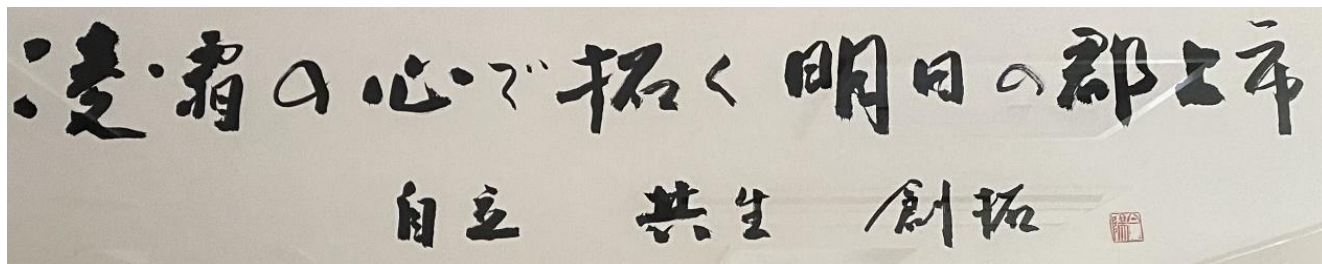 凌霜の心で拓く明日の郡上市
自立 共生 創拓